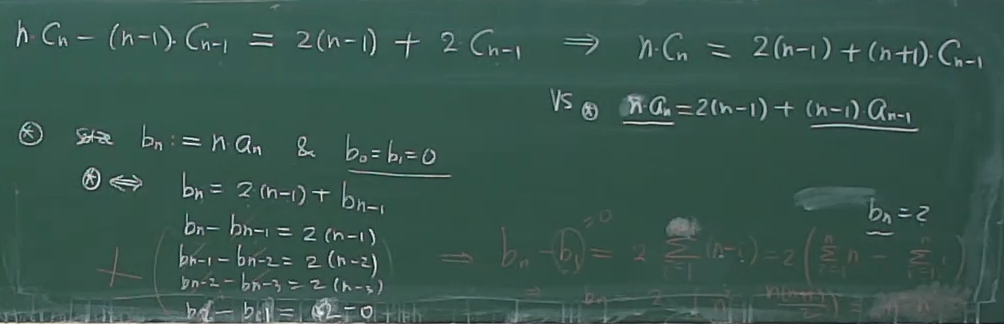 n·Cn − (n−1)·Cn-1 = 2(n−1) + 2Cn-1 ⇒ n·Cn = 2(n−1) + (n+1)·Cn-1
VS ⊛ n·an = 2(n−1) + (n−1)·an-1
⊛ bn := n·an & b0 = b1 = 0
⊛ ⇔ bn = 2(n−1) + bn-1
bn = ?
bn − bn-1 = 2(n−1)
bn-1 − bn-2 = 2(n−2)
bn-2 − bn-3 = 2(n−3)
+ ⇒ bn − b1 = 2 Σ i=1 (n−i) = 2( Σ n i=1 n − Σ n i=1 i )
=0